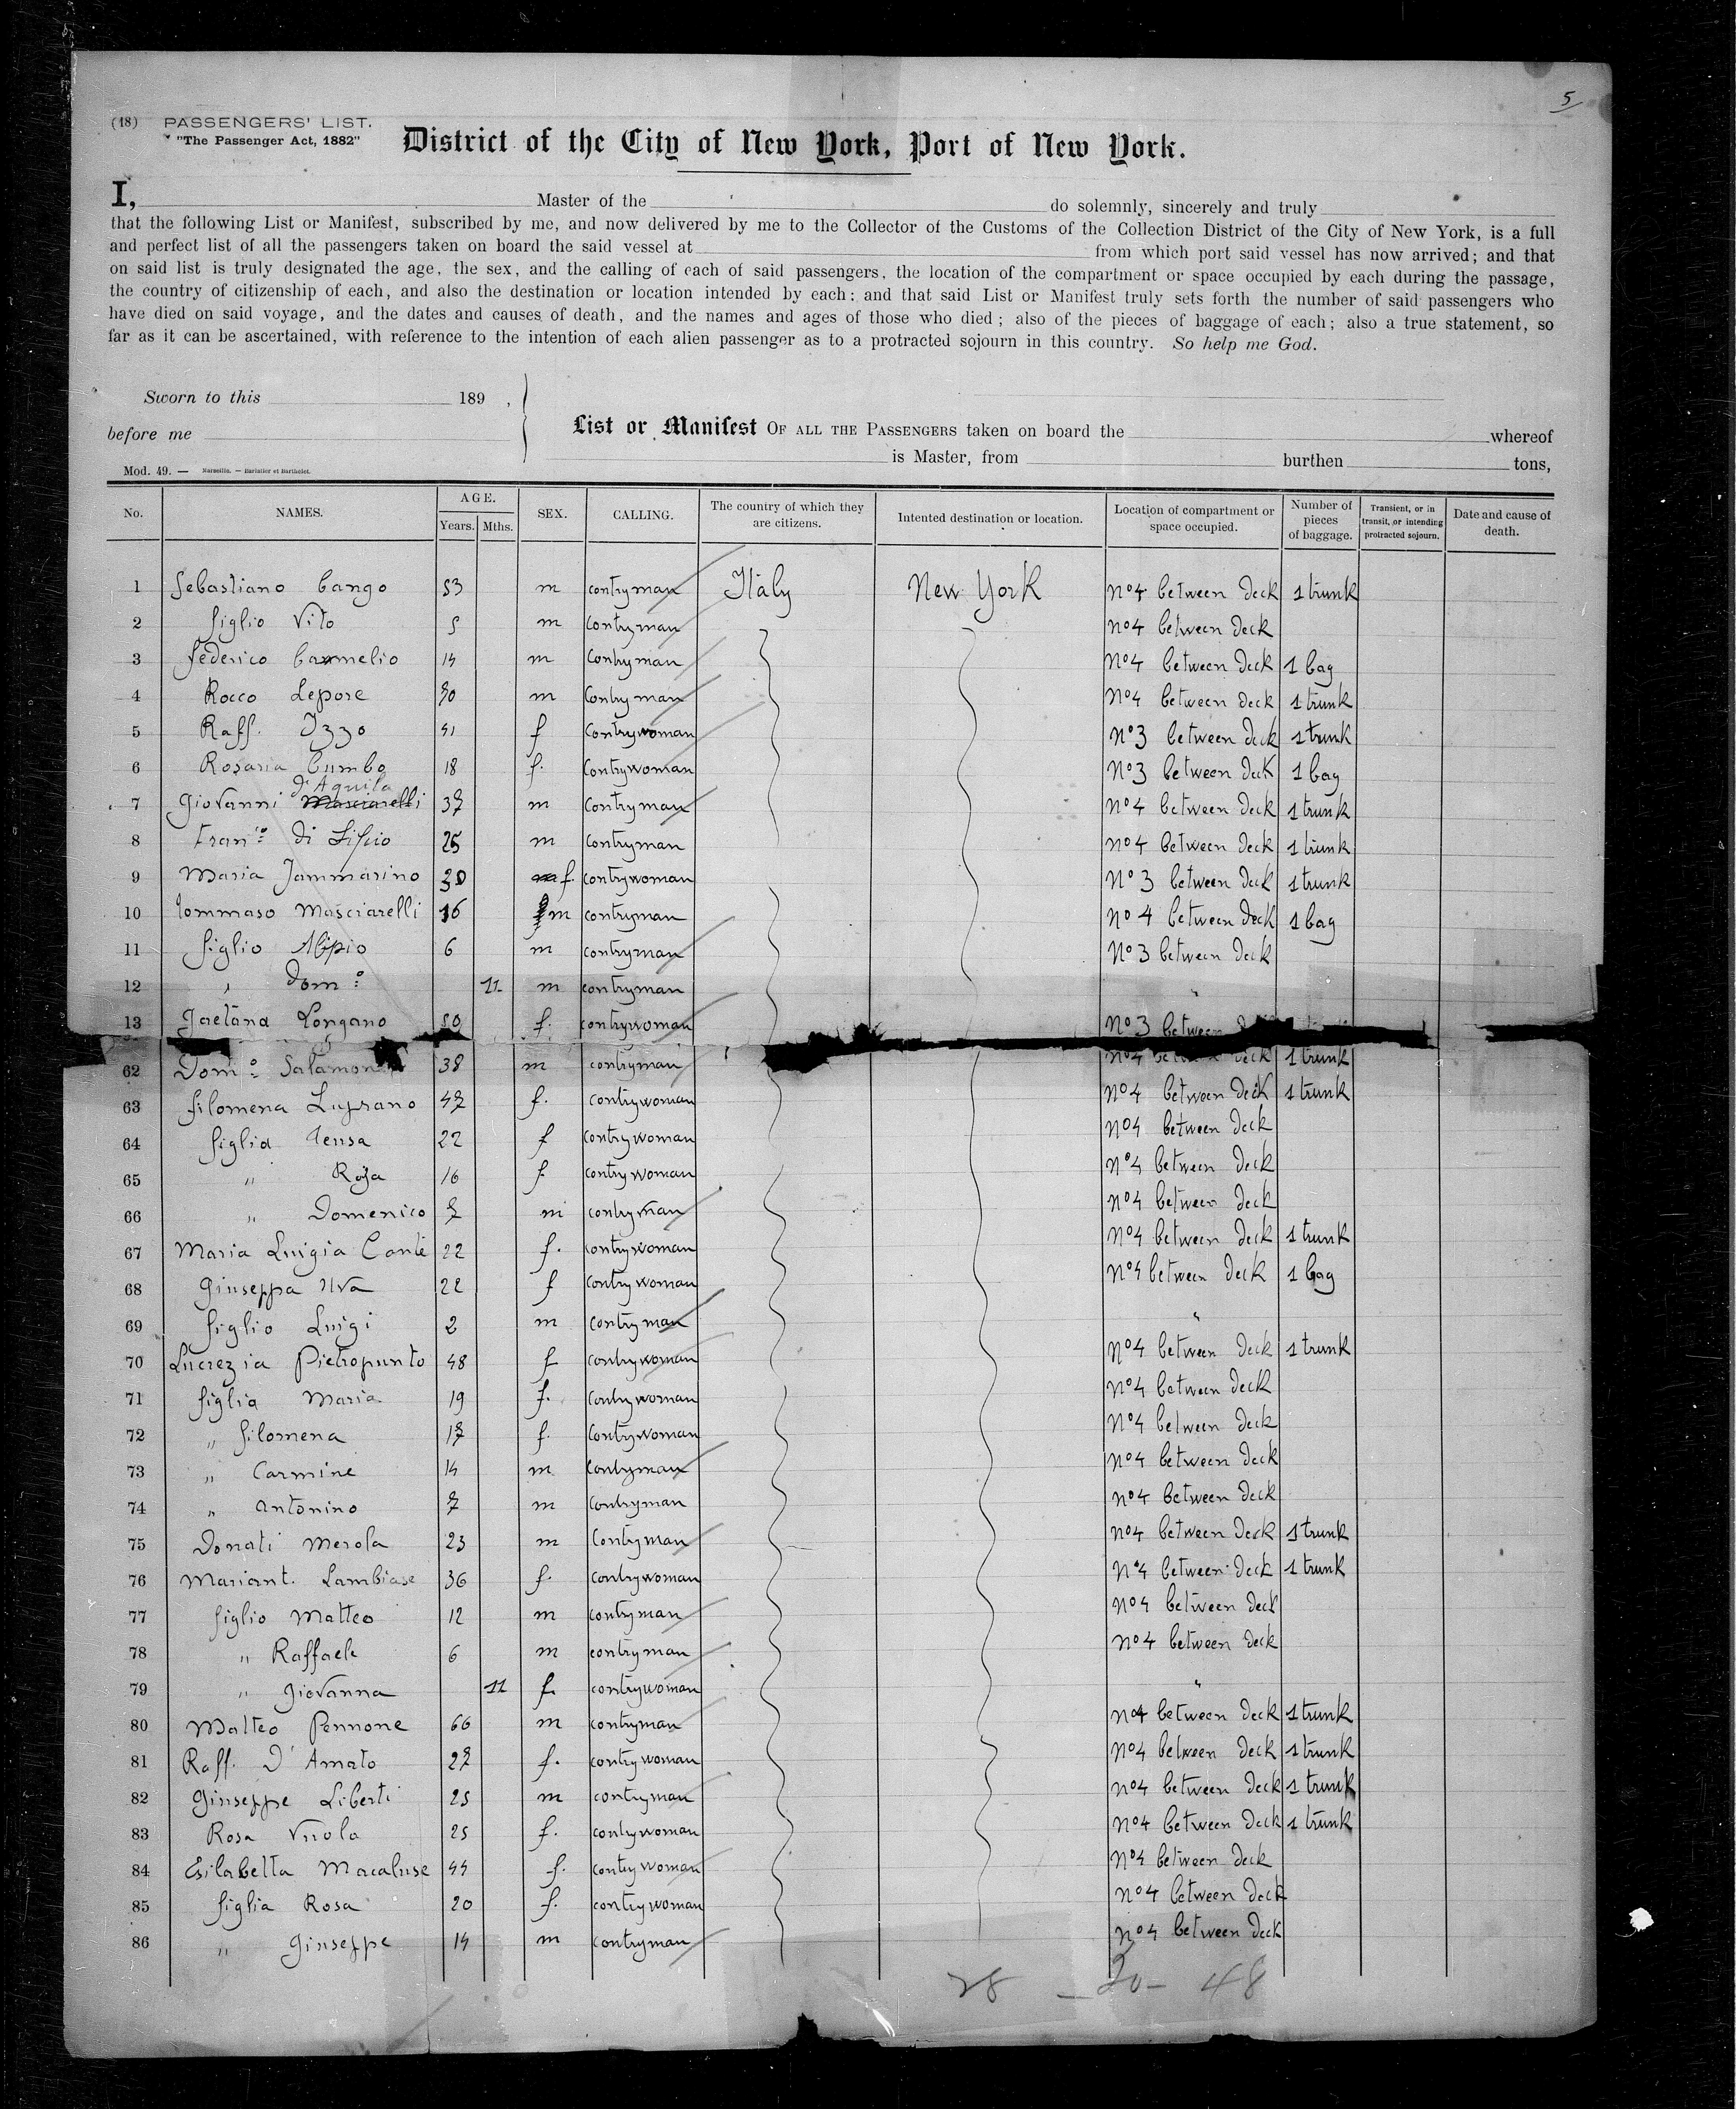 5
(18) PASSENGERS' LIST.
"The Passenger Act, 1882"
District of the City of New York, Port of New York.
I, Master of the do solemnly, sincerely and truly
that the following List or Manifest, subscribed by me, and now delivered by me to the Collector of the Customs of the Collection District of the City of New York, is a full
and perfect list of all the passengers taken on board the said vessel at from which port said vessel has now arrived; and that
on said list is truly designated the age, the sex, and the calling of each of said passengers, the location of the compartment or space occupied by each during the passage,
the country of citizenship of each, and also the destination or location intended by each; and that said List or Manifest truly sets forth the number of said passengers who
have died on said voyage, and the dates and causes of death, and the names and ages of those who died; also of the pieces of baggage of each; also a true statement, so
far as it can be ascertained, with reference to the intention of each alien passenger as to a protracted sojourn in this country. So help me God.
Sworn to this 189 ,
before me
List or Manifest OF ALL THE PASSENGERS taken on board the whereof
is Master, from burthen tons,
Mod. 49. — Marseille. — Barlatier et Barthelet.
No. NAMES. AGE. Years. Mths. SEX. CALLING. The country of which they are citizens. Intented destination or location. Location of compartment or space occupied. Number of pieces of baggage. Transient, or in transit, or intending protracted sojourn. Date and cause of death.
1 Sebastiano Cango 53 m contryman Italy New York No4 between deck 1 trunk
2 figlio Vito 5 m contryman No4 between deck
3 federico Carmelio 14 m contryman No4 between deck 1 bag
4 Rocco Lepore m contryman No4 between deck 1 trunk
5 Raff. Izzo 41 f contrywoman No3 between deck 1 trunk
6 Rosaria Cumbo 18 f. contrywoman No3 between deck 1 bag
D'Aquila
7 Giovanni Masciarelli 37 m contryman No4 between deck 1 trunk
8 fran.co di m contryman No4 between deck 1 trunk
9 Maria Jammarino 30 f. contrywoman No3 between deck 1 trunk
10 Tommaso Masciarelli 16 m contryman No4 between deck 1 bag
11 figlio 6 m contryman No3 between deck
12 " Dom.o 11 m contryman "
13 Gaetana Longano 50 f. contrywoman No3 between
62 Dom.o 38 m contryman No4 between deck 1 trunk
63 filomena 47 f. contrywoman No4 between deck 1 trunk
64 figlia 22 f contrywoman No4 between deck
65 " Rosa 16 f contrywoman No4 between deck
66 " Domenico 7 m contryman No4 between deck
67 Maria Luigia Conte 22 f. contrywoman No4 between deck 1 trunk
68 Giuseppa Uva 22 f contrywoman No4 between deck 1 bag
69 figlio Luigi 2 m contryman "
70 Lucrezia Pietropunto 48 f contrywoman No4 between deck 1 trunk
71 figlia Maria 19 f. contrywoman No4 between deck
72 " filomena 17 f. contrywoman No4 between deck
73 " Carmine 14 m contryman No4 between deck
74 " Antonino 7 m contryman No4 between deck
75 Donati Merola 23 m contryman No4 between deck 1 trunk
76 Mariant. Lambiase 36 f. contrywoman No4 between deck 1 trunk
77 figlio Matteo 12 m contryman No4 between deck
78 " Raffaele 6 m contryman No4 between deck
79 " Giovanna 11 f. contrywoman "
80 Matteo Pennone 66 m contryman No4 between deck 1 trunk
81 Raff. D'Amato 27 f. contrywoman No4 between deck 1 trunk
82 Giuseppe Liberti 25 m contryman No4 between deck 1 trunk
83 Rosa Vuolo 25 f. contrywoman No4 between deck 1 trunk
84 Esilabetta Macaluse 44 f. contrywoman No4 between deck
85 figlia Rosa 20 f. contrywoman No4 between deck
86 " Giuseppe 14 m contryman No4 between deck
28 — 20 — 48